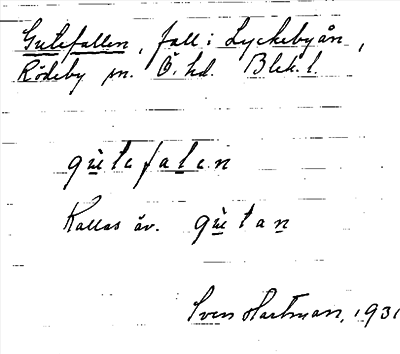 Gutefallen, fall i Lyckebyån,
Rödeby sn. Ö. hd. Blek. l.
gu̲̇tefalen
Kallas äv. gu̲̇tan
Sven Hartman, 1931